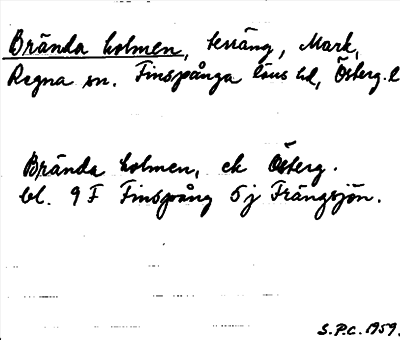 Brända holmen, terräng, Mark,
Regna sn. Finspånga läns hd, Österg. l
Brända holmen, ek Österg.
bl. 9 F Finspång 5 j Trängsjön.
S.P.C. 1959.